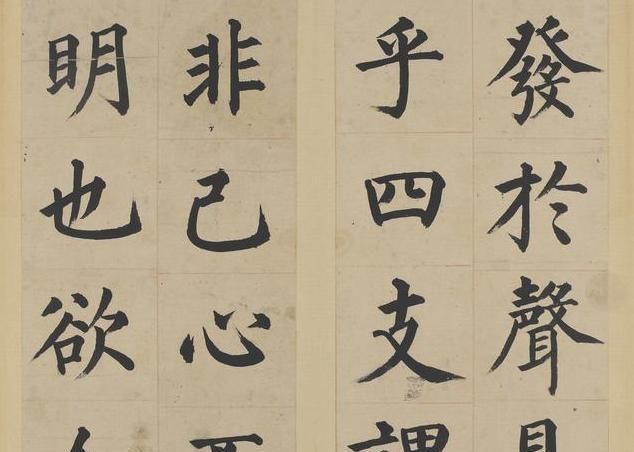 發於聲
乎四支謂
非己心
明也欲